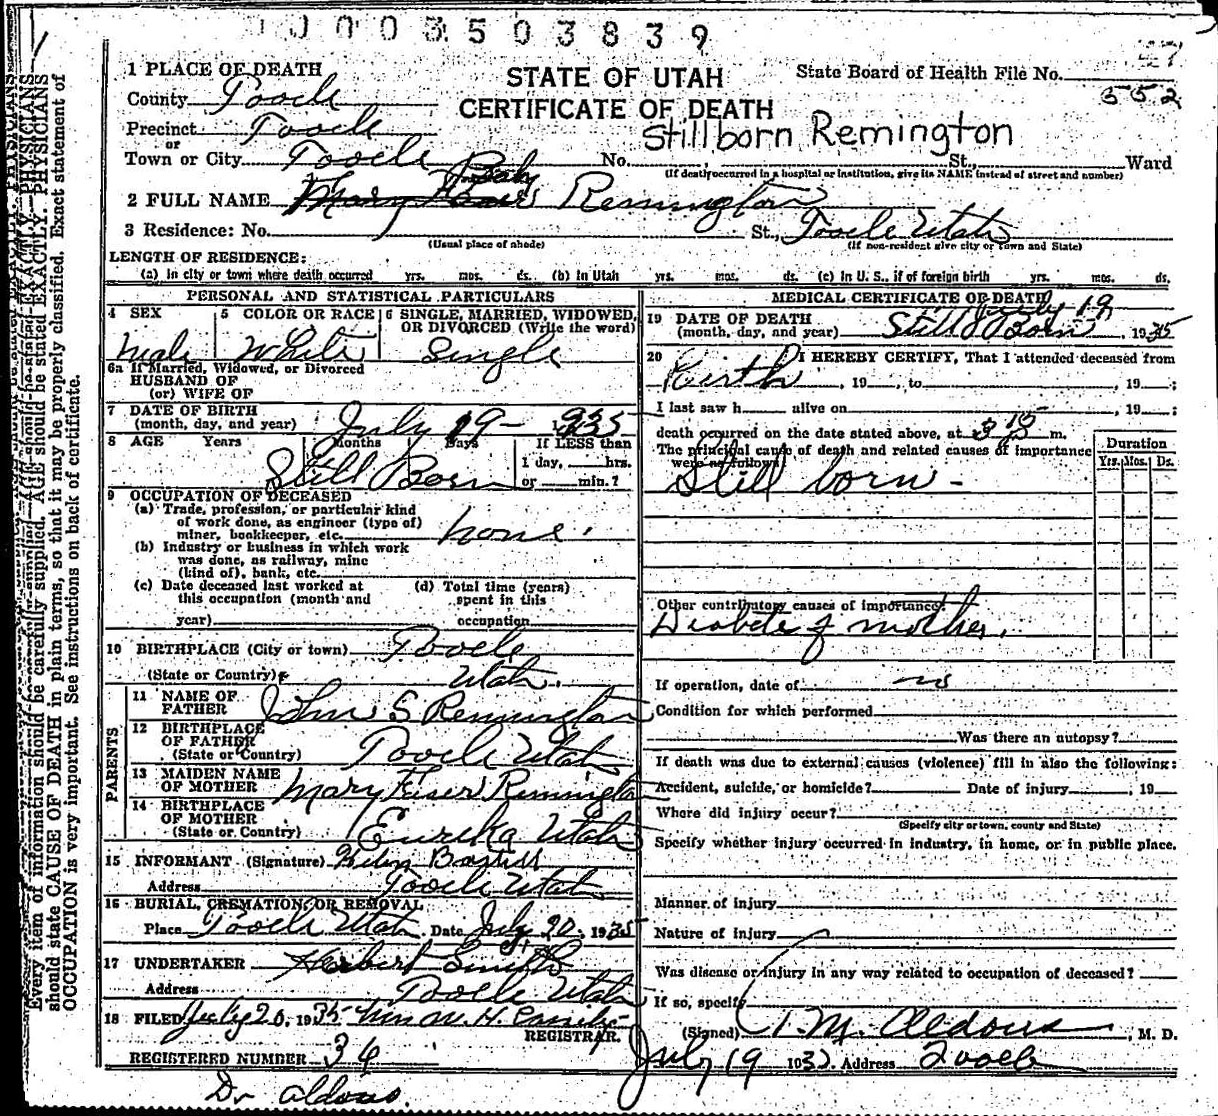 0003503839
1 PLACE OF DEATH
STATE OF UTAH
State Board of Health File No.
County Tooele
CERTIFICATE OF DEATH
552
Precinct Tooele
Stillborn Remington
or
Town or City Tooele No. St., Ward
(If death occurred in a hospital or institution, give its NAME instead of street and number)
Baby
2 FULL NAME Mary Remington
3 Residence: No. St., Tooele Utah
(Usual place of abode) (If non-resident give city or town and State)
LENGTH OF RESIDENCE:
(a) In city or town where death occurred yrs. mos. ds. (b) In Utah yrs. mos. ds. (c) In U. S., if of foreign birth yrs. mos. ds.
PERSONAL AND STATISTICAL PARTICULARS
4 SEX
Male
5 COLOR OR RACE
White
6 SINGLE, MARRIED, WIDOWED,
OR DIVORCED (Write the word)
Single
6a If Married, Widowed, or Divorced
HUSBAND OF
(or) WIFE OF
7 DATE OF BIRTH
(month, day, and year) July 19 - 1935
8 AGE Years Months Days If LESS than
1 day, hrs.
or min.?
Still Born
9 OCCUPATION OF DECEASED
(a) Trade, profession, or particular kind
of work done, as engineer (type of)
miner, bookkeeper, etc. none.
(b) Industry or business in which work
was done, as railway, mine
(kind of), bank, etc.
(c) Date deceased last worked at
this occupation (month and
year)
(d) Total time (years)
spent in this
occupation
10 BIRTHPLACE (City or town) Tooele
(State or Country) Utah.
PARENTS
11 NAME OF
FATHER John S Remington
12 BIRTHPLACE
OF FATHER
(State or Country) Tooele Utah
13 MAIDEN NAME
OF MOTHER Mary Remington
14 BIRTHPLACE
OF MOTHER
(State or Country) Eureka Utah
15 INFORMANT (Signature)
Address Tooele Utah
16 BURIAL, CREMATION, OR REMOVAL
Place Tooele Utah Date July 20, 1935
17 UNDERTAKER Herbert Smith
Address Tooele Utah
18 FILED July 20, 1935 W. H.
REGISTRAR.
REGISTERED NUMBER 34
Dr Aldous.
MEDICAL CERTIFICATE OF DEATH
July 19
19 DATE OF DEATH
(month, day, and year) Still Born, 1935
20 I HEREBY CERTIFY, That I attended deceased from
Birth, 19 , to , 19 ;
I last saw h alive on , 19 :
death occurred on the date stated above, at 3 15 m.
The principal cause of death and related causes of importance
were as follows:
Still born -
Duration
Yrs. Mos. Ds.
Other contributory causes of importance:
Diabetes of mother.
If operation, date of no
Condition for which performed
Was there an autopsy?
If death was due to external causes (violence) fill in also the following:
Accident, suicide, or homicide? Date of injury , 19
Where did injury occur?
(Specify city or town, county and State)
Specify whether injury occurred in industry, in home, or in public place.
Manner of injury
Nature of injury
Was disease or injury in any way related to occupation of deceased?
If so, specify
(Signed) M. Aldous, M. D.
July 19 193 Address Tooele
Every item of information should be carefully supplied. AGE should be stated EXACTLY. PHYSICIANS
should state CAUSE OF DEATH in plain terms, so that it may be properly classified. Exact statement of
OCCUPATION is very important. See instructions on back of certificate.